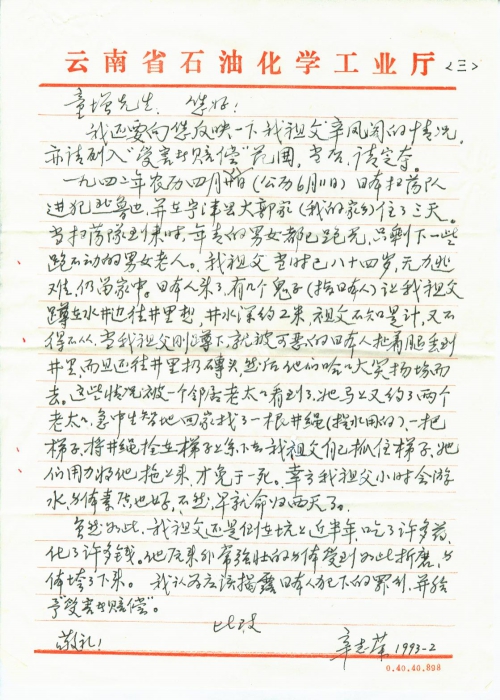 云南省石油化学工业厅 <三>
童增先生: 您好!
我还要向您反映一下我祖父辛凤阁的情况,
亦请列入"受害者赔偿"范围,当否,请定夺。
一九四二年农历四月 日(公历6月11日)日本扫荡队
进犯 鲁边,并在宁津县大郭家(我的家乡)住了三天。
当扫荡队到来时,年青的男女都已跑光,只剩下一些
跑不动的男女老人。我祖父当时已八十四岁,无力逃
难,仍留家中。日本人来了,有几个鬼子(指日本人)让我祖父
蹲在水井边往井里想,井水深约2米,祖父不知是计,又不
得不从,当我祖父刚蹲下,就被可恶的日本人 着腿丢到
井里,而且还往井里扔砖头,然后他们哈哈大笑扬场而
去。这些情况被一个邻居老太太看到了,她马上又约了两个
老太太,急中生智地回家找了一根井绳(提水用的),一把
梯子,将井绳拴在梯子上系下去,我祖父自己抓住梯子,她
们用力将他拖上来,才免于一死。幸亏我祖父小时会游
水,身体素质也好,不然,早就命归西天了。
虽然如此,我祖父还是倒在炕上近半年,吃了许多药,
化了许多钱。他原来非常强壮的身体受到如此折磨,身
体垮了下来。我认为应该揭露日本人犯下的罪行,并给
予"受害者赔偿"。
此致
敬礼! 辛志荣 1993-2
0.40.40.898